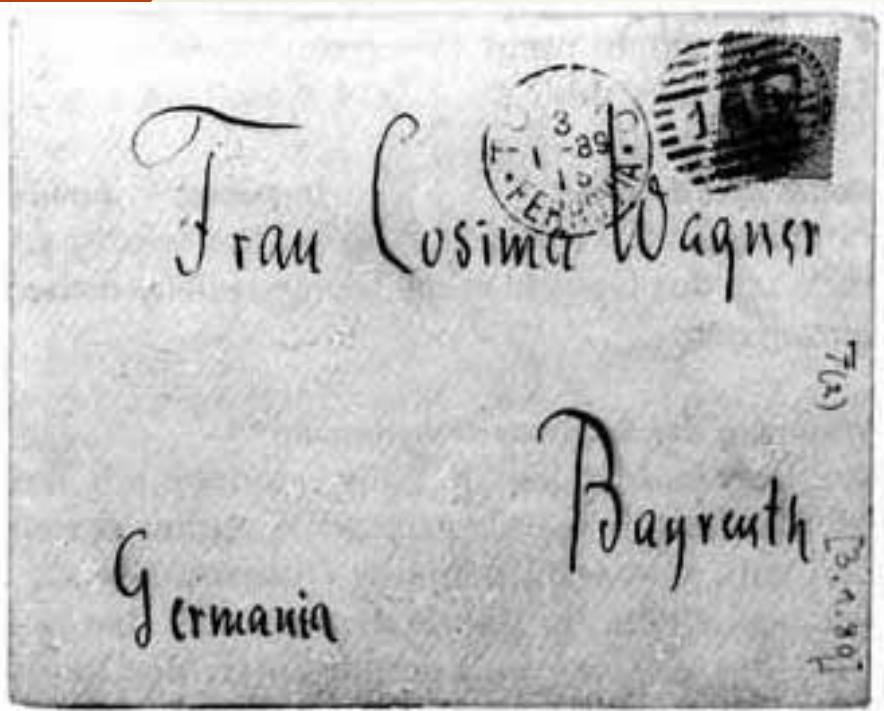 3
1 - 89
FERROVIA
1
Frau Cosima Wagner
Bayreuth
Germania
[3.1.89]